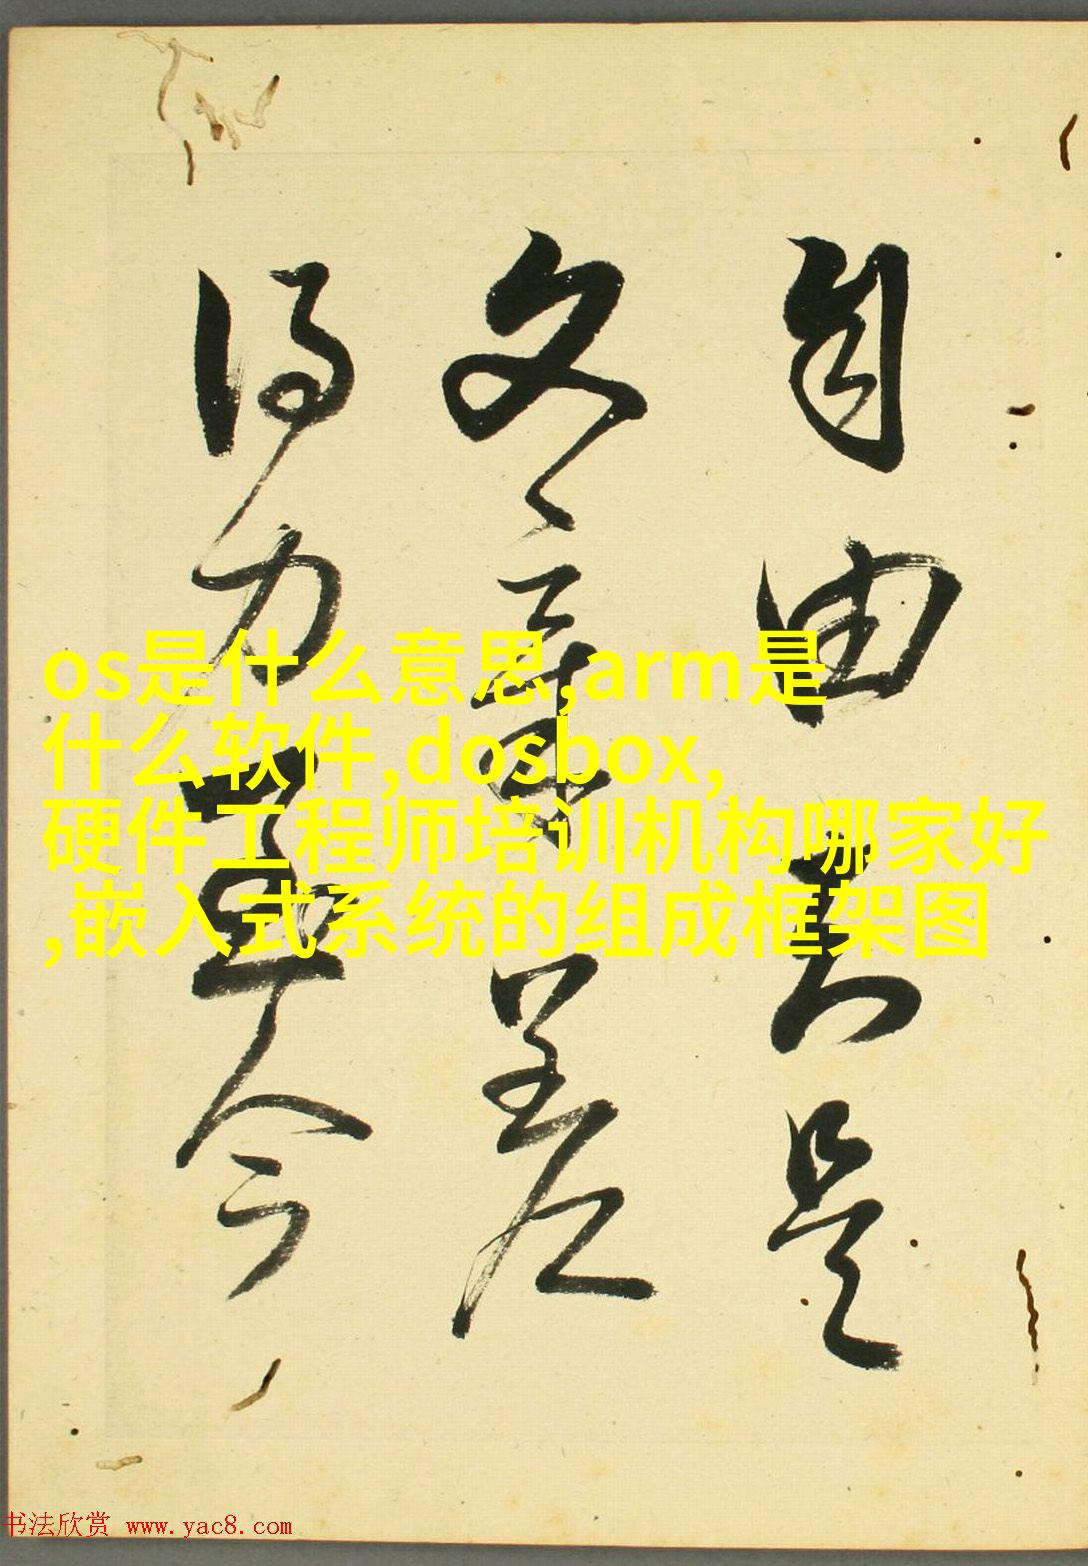 os是什么意思,arm是
什么软件,dosbox,
硬件工程师培训机构哪家好
,嵌入式系统的组成框架图
自由是
文章差
得力今
书法欣赏 www.yac8.com